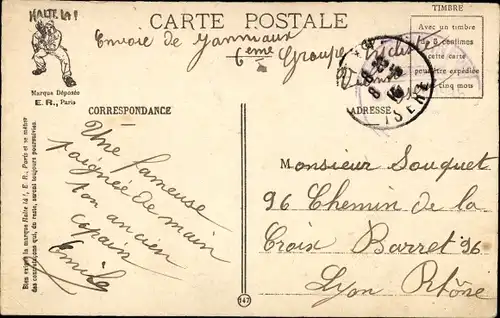 HALTE LA !
CARTE POSTALE
TIMBRE
Avec un timbre
cette carte
peut être expédiée
cinq mots
Envoie de Janniaux
6eme Groupe
Marque Déposée
E. R., Paris
CORRESPONDANCE
ADRESSE
ISERE
Une fameuse
poignée de main
ton ancien
copain
Emile
Monsieur Souquet
96 Chemin de la
Croix Barret 96
Lyon Rhône
Bien exiger la marque Halte là !, E. R., Paris et se méfier
des contrefaçons qui, du reste, seront toujours poursuivies.
147